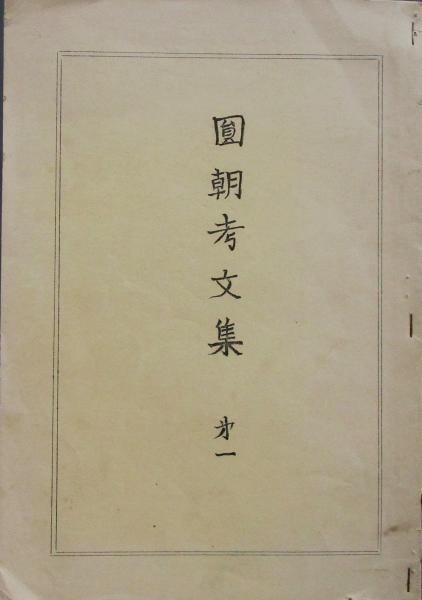 圓朝考文集 㐧一